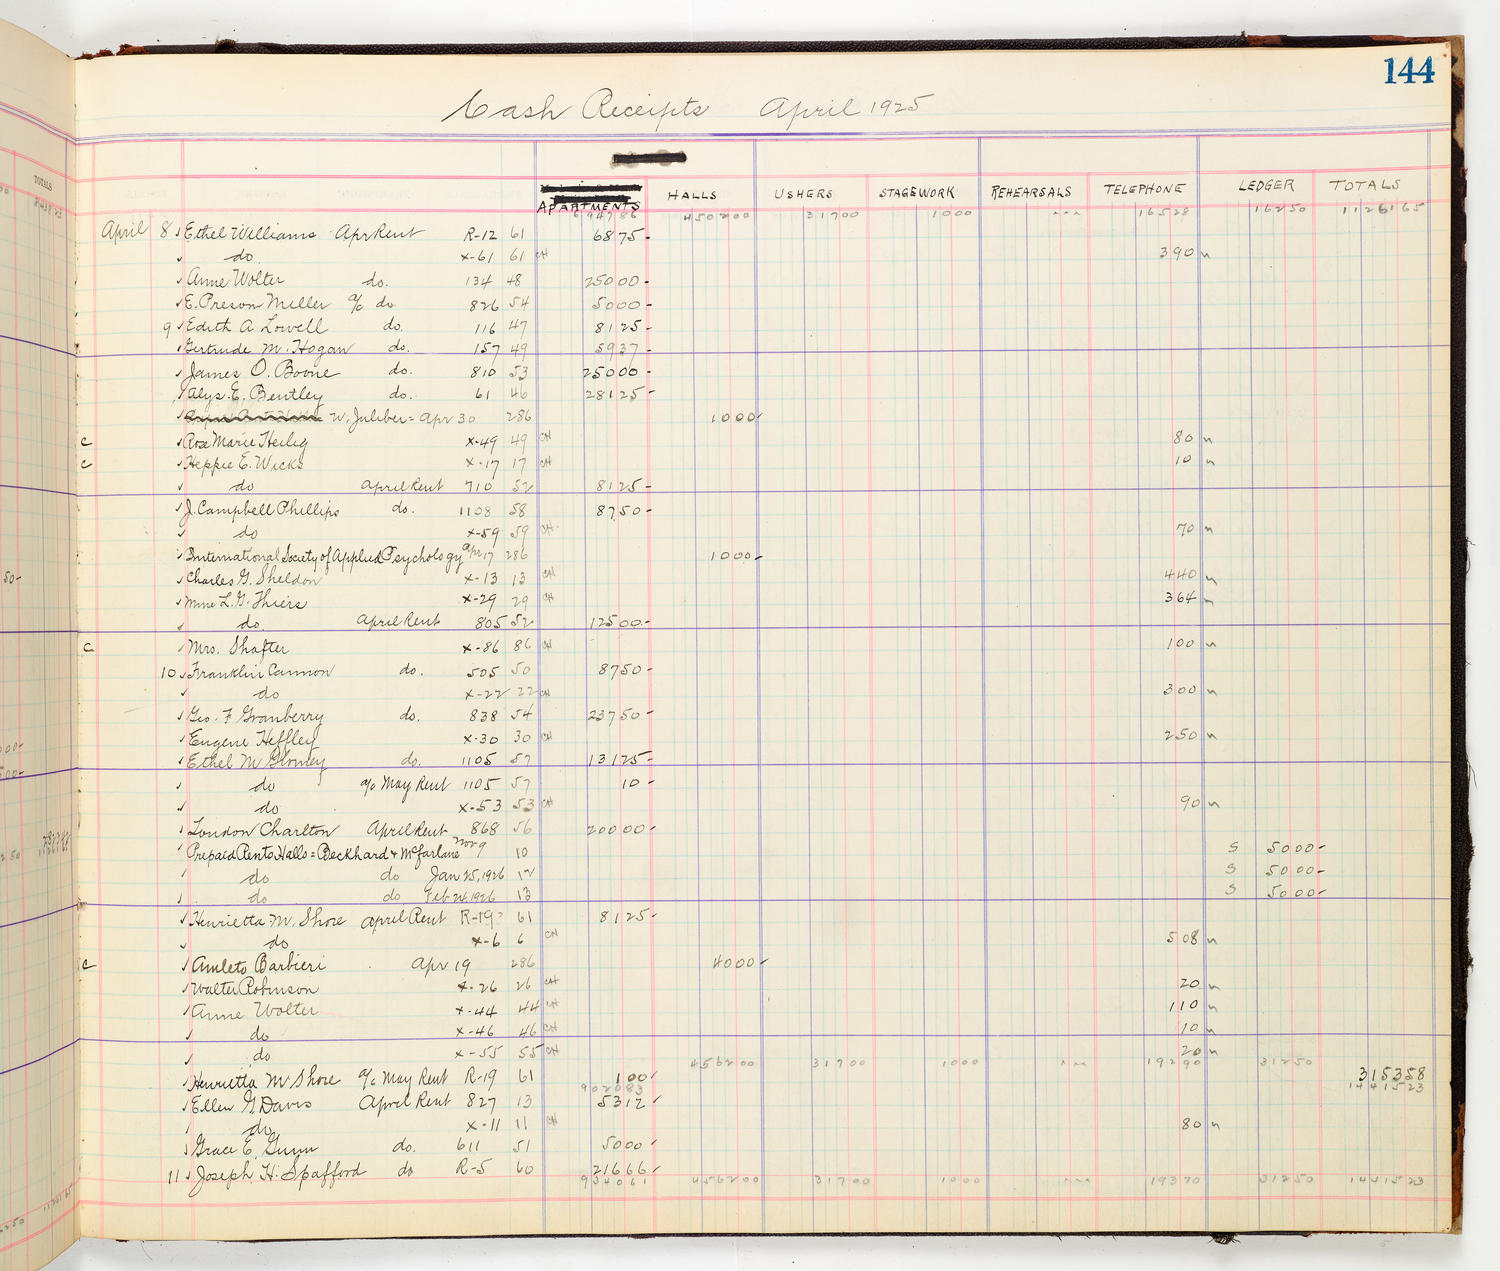 144
Cash Receipts April 1925
TOTALS
APARTMENTS HALLS USHERS STAGEWORK REHEARSALS TELEPHONE LEDGER TOTALS
694786 450200 31700 1000 16528 16250 1126165
April 8 Ethel Williams Apr Rent R-12 61 6875-
do. x-61 61 CH 390
Anne Wolter do. 134 48 25000-
E. Preson Miller a/c do. 826 54 5000-
9 Edith A Lowell do. 116 47 8125-
Gertrude M. Hogan do. 157 49 5937-
James O. Boone do. 810 53 25000-
Alys. E. Bentley do. 61 46 28125-
W. Juliber = Apr 30 286 1000
c Rose Marie Heilig x-49 49 CH 80
c Heppie E. Wicks x-17 17 CH 10
do April Rent 710 52 8125-
J. Campbell Phillips do. 1108 58 8750-
do x-59 59 CH 70
International Society of Applied Psychology Apr 17 286 1000-
Charles G. Sheldon x-13 13 CH 440
Mme L. G. Thiers x-29 29 CH 364
do. April Rent 805 52 12500-
c Mrs. Shafter x-86 86 CH 100
10 Franklin Cannon do. 505 50 8750-
do x-22 22 CH 300
Geo. F Granberry do. 838 54 23750-
Eugene Heffley x-30 30 CH 250
Ethel M do. 1105 57 13125-
do a/c May Rent 1105 57 10-
do x-53 53 CH 90
London Charlton April Rent 868 56 20000
Prepaid Rents Halls = Beckhard & McFarlane Nov 9 10 S 5000-
do do Jan 25, 1926 12 S 5000-
do do Feb 24, 1926 13 S 5000-
Henrietta M. Shore April Rent R-19 61 8125
do x-6 6 CH 508
c Amleto Barbieri Apr 19 286 4000
Walter Robinson x-26 26 CH 20
Anne Wolter x-44 44 CH 110
do x-46 46 CH 10
do x-55 55 CH 20
456200 31700 1000 19290 31250
Henrietta M Shore a/c May Rent R-19 61 100 315358
902083 1441523
Ellen G Davis April Rent 827 13 5312
do x-11 11 CH 80
Grace E. Gunn do. 611 51 5000
11 Joseph H. Spafford do R-5 60 21666
934061 456200 31700 1000 19370 31250 1441523